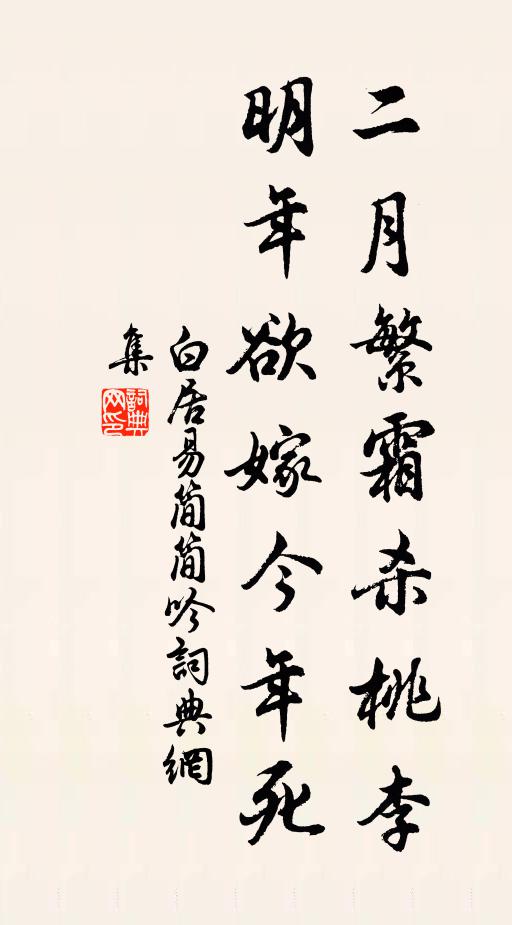 二月繁霜杀桃李
明年欲嫁今年死
白居易简简吟詞典網
集
詞典网印